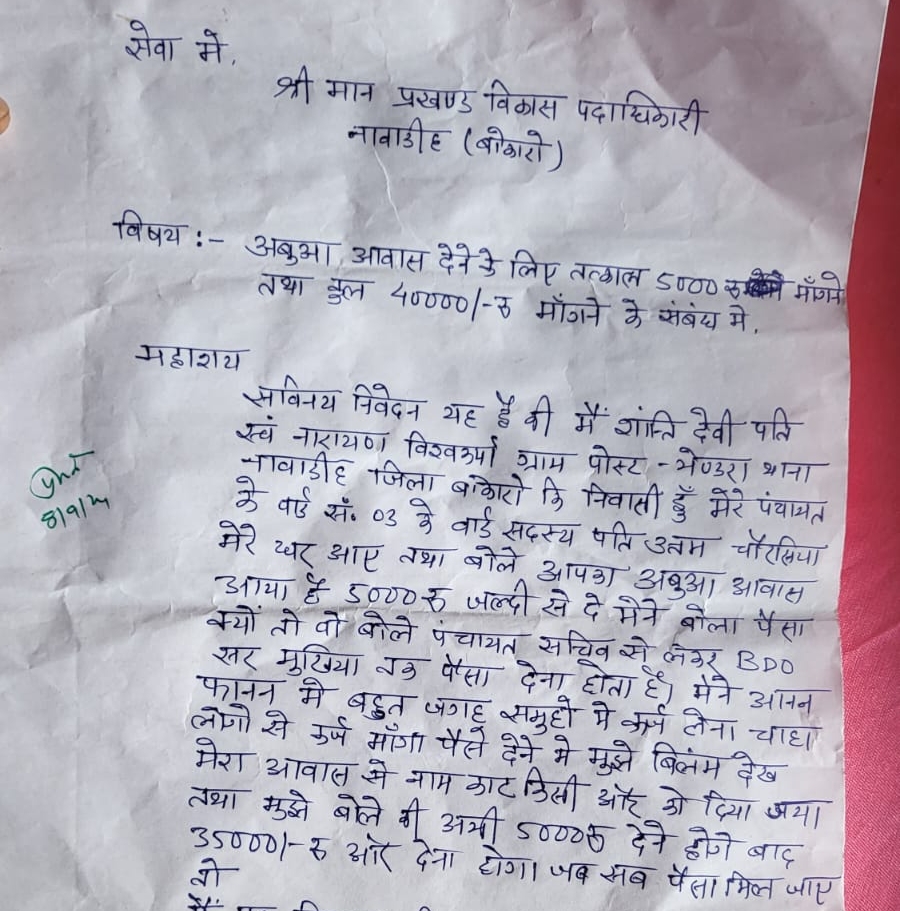 सेवा मे,
श्री मान प्रखण्ड विकास पदाधिकारी
नावाडीह (बोकारो)
विषय :- अबुआ आवास देने के लिए तत्काल 5000 रु माँगने
तथा कुल 40000/-रु माँगने के संबंध मे,
महाशय
सविनय निवेदन यह है की मैं शांति देवी पति
स्वं नारायण विश्वकर्मा ग्राम पोस्ट - भेण्डरा थाना
नावाडीह जिला बोकारो कि निवासी हुँ मेरे पंचायत
के वार्ड सं. 03 के वार्ड सदस्य पति उतम चौरसिया
मेरे घर आए तथा बोले आपका अबुआ आवास
आया है 5000 रु जल्दी से दे मैने बोला पैसा
क्यों तो वो बोले पंचायत सचिव से लेकर BDO
सर मुखिया तक पैसा देना होता है। मैने आनन
फानन मे बहुत जगह समुहो मे कर्ज लेना चाहा
लोगो से कर्ज माँगा पैसे देने मे मुझे बिलंम देख
मेरा आवास से नाम काट किसी और को दिया गया
तथा मुझे बोले की अभी 5000रु देने होगे बाद
35000/-रु और देना होगा। जब सब पैसा मिल जाए
तो
मैं
8/9/24